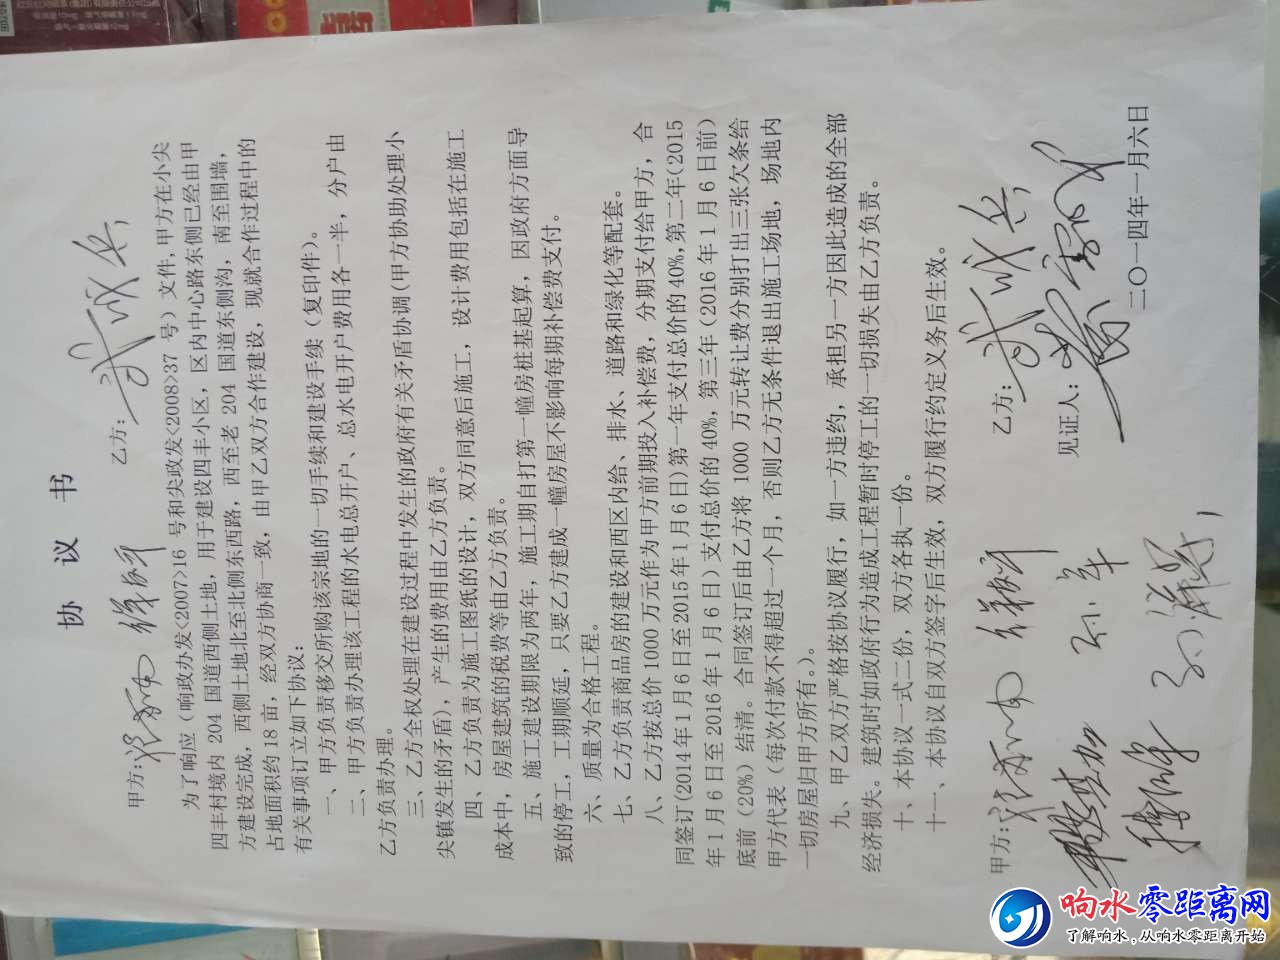 协 议 书
甲方: 乙方:
为了响应（响政办发<2007>16 号和尖政发<2008>37 号）文件,甲方在小尖
四丰村境内 204 国道西侧土地，用于建设四丰小区，区内中心路东侧已经由甲
方建设完成，西侧土地北至北侧东西路，西至老 204 国道东侧沟，南至围墙，
占地面积约 18 亩，经双方协商一致，由甲乙双方合作建设，现就合作过程中的
有关事项订立如下协议：
一、甲方负责移交所购该宗地的一切手续和建设手续（复印件）。
二、甲方负责办理该工程的水电总开户、总水电开户费用各一半，分户由
乙方负责办理。
三、乙方全权处理在建设过程中发生的政府有关矛盾协调(甲方协助处理小
尖镇发生的矛盾)，产生的费用由乙方负责。
四、乙方负责为施工图纸的设计，双方同意后施工，设计费用包括在施工
成本中，房屋建筑的税费等由乙方负责。
五、施工建设期限为两年，施工期自打第一幢房桩基起算，因政府方面导
致的停工，工期顺延，只要乙方建成一幢房屋不影响每期补偿费支付。
六、质量为合格工程。
七、乙方负责商品房的建设和西区内给、排水、道路和绿化等配套。
八、乙方按总价 1000 万元作为甲方前期投入补偿费，分期支付给甲方，合
同签订(2014年1月6日至2015年1月6日)第一年支付总价的40%,第二年(2015
年1月6日至2016年1月6日)支付总价的40%,第三年(2016年1月6日前)
底前（20%）结清。合同签订后由乙方将 1000 万元转让费分别打出三张欠条给
甲方代表（每次付款不得超过一个月，否则乙方无条件退出施工场地，场地内
一切房屋归甲方所有。）。
九、甲乙双方严格按协议履行，如一方违约，承担另一方因此造成的全部
经济损失。建筑时如政府行为造成工程暂时停工的一切损失由乙方负责。
十、本协议一式二份，双方各执一份。
十一、本协议自双方签字后生效，双方履行约定义务后生效。
甲方: 乙方:
见证人:
二〇一四年一月六日
响水零距离网
了解响水，从响水零距离开始